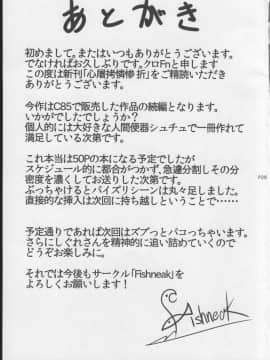 あとがき
初めまして。またはいつもありがとうございます。
でなければお久しぶりです。クロFnと申します
この度は新刊「心層拷憐惨折」をご精読いただき
ありがとうございます。
今作はC85で販売した作品の続編となります。
いかがでしたでしょうか?
個人的には大好きな人間便器シュチュで一冊作れて
満足している次第です。
これ本当は50Pの本になる予定でしたが
スケジュール的に都合がつかず、急遽分割しその分
密度を濃くしてお送りした次第です。
ぶっちゃけるとパイズリシーンは丸々足しました。
直接的な挿入は次回に持ち越しということで・・・・
予定通りであれば次回はズブっとパコっちゃいます。
さらにしぐれさんを精神的に追い詰めていくので
どうぞお楽しみに。
それでは今後もサークル「Fishneak」を
よろしくお願いします!
Fishneak